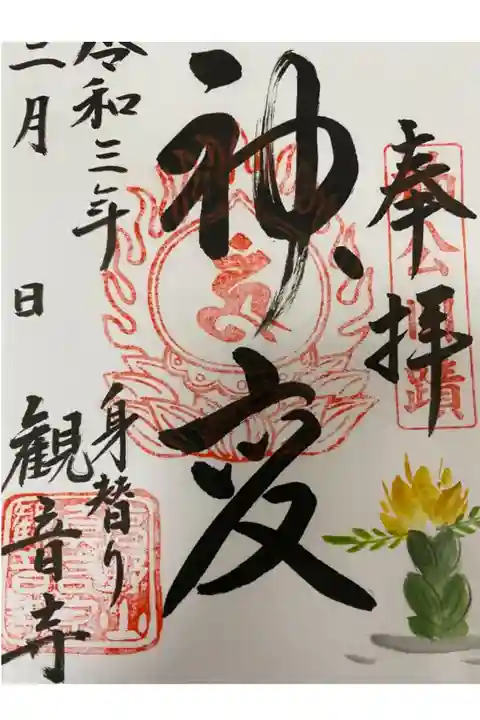 奉拝
神変
令和三年
三月 日
身替り
観音寺